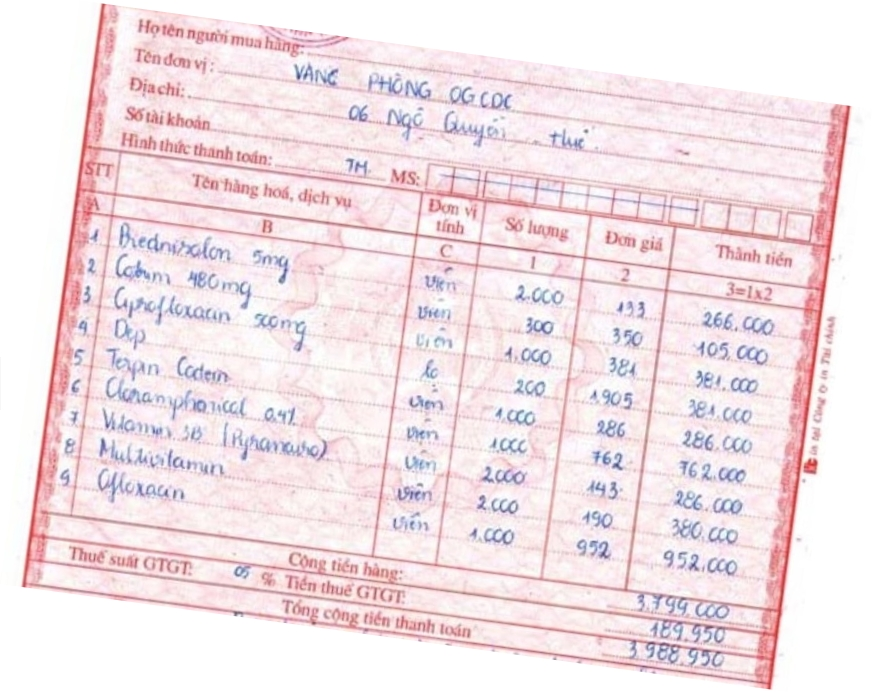 Họ tên người mua hàng:
Tên đơn vị: VĂNG PHÒNG OGCDC
Địa chỉ: 06 Ngô Quyền Huế
Số tài khoản
Hình thức thanh toán: TM. MS:
STT Tên hàng hoá, dịch vụ Đơn vị tính Số lượng Đơn giá Thành tiền
A B C 1 2 3=1x2
1 Prednisolon 5mg viên 2.000 133 266.000
2 Cotrim 480mg viên 300 350 105.000
3 Ciprofloxacin 500mg viên 1.000 381 381.000
4 Dep lo 200 1.905 381.000
5 Terpin Codein viên 1.000 286 286.000
6 Cloramphenicol 0.4% viên 1.000 762 762.000
7 Vitamin 3B viên 2.000 143 286.000
8 Multivitamin viên 2.000 190 380.000
9 Ofloxacin viên 1.000 952 952.000
Cộng tiền hàng: 3.799.000
Thuế suất GTGT: 05 % Tiền thuế GTGT: 189.950
Tổng cộng tiền thanh toán 3.988.950
in tại Công ty in Tài chính